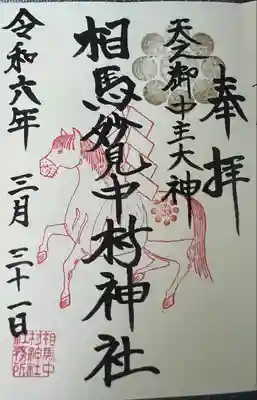 奉拝
天之御中主大神
相馬妙見中村神社
令和六年 三月 三十一日
相馬中
村神社
社務所